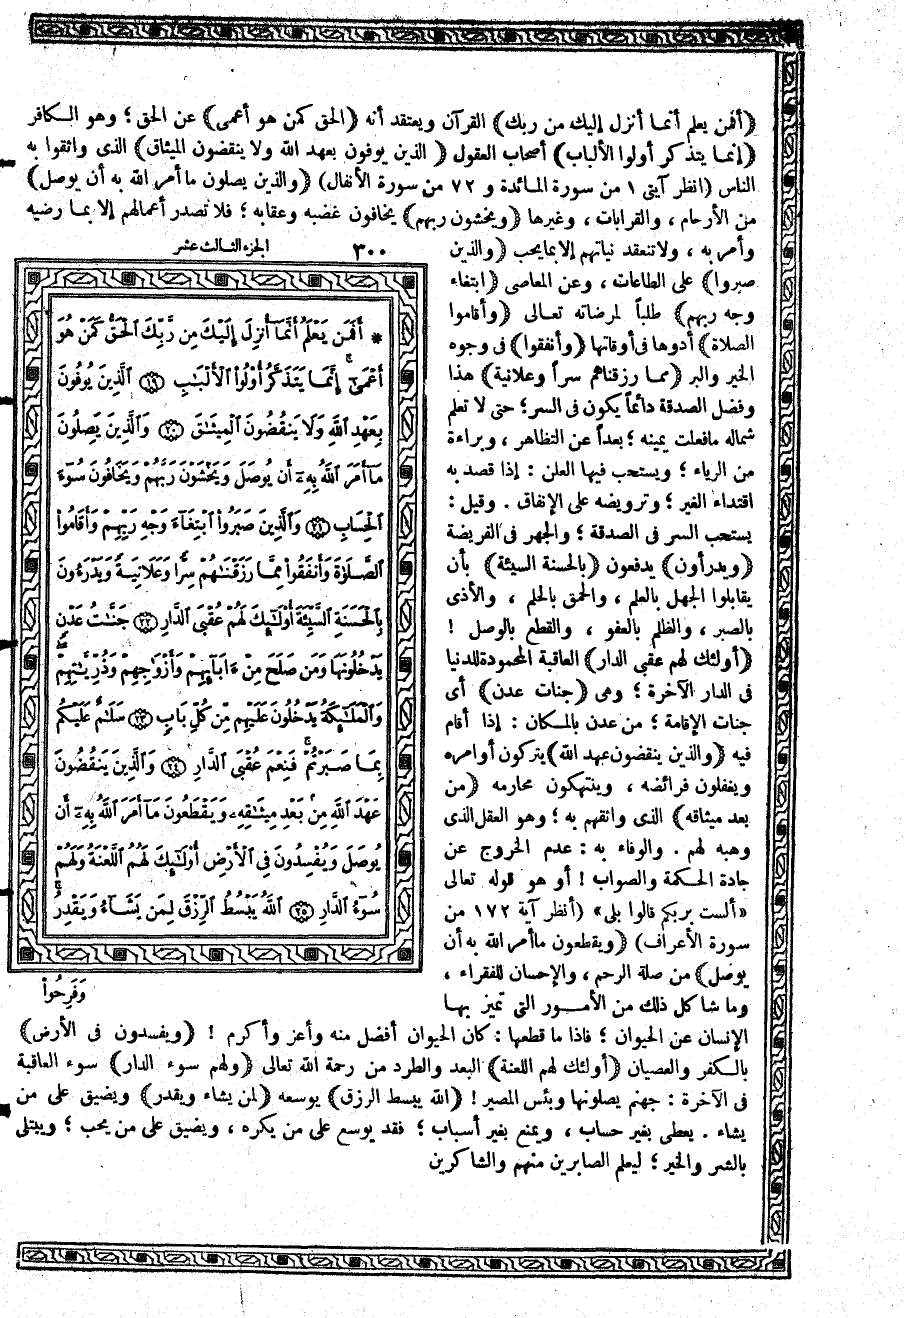 (أفمن يعلم أنما أنزل إليك من ربك) القرآن ويعتقد أنه (الحق كمن هو أعمى) عن الحق؛ وهو الكافر
(إنما يتذكر أولوا الألباب) أصحاب العقول (الذين يوفون بعهد الله ولا ينقضون الميثاق) الذى واثقوا به
الناس (انظر آيتى ١ من سورة المائدة و ٧٢ من سورة الأنفال) (والذين يصلون ما أمر الله به أن يوصل)
من الأرحام، والقرابات، وغيرها (ويخشون ربهم) يخافون غضبه وعقابه؛ فلا تصدر أعمالهم إلا بما رضيه
وأمر به، ولا تنعقد نياتهم إلا بما يحب (والذين
صبروا) على الطاعات، وعن المعاصى (ابتغاء
وجه ربهم) طلباً لمرضاته تعالى (وأقاموا
الصلاة) أدوها فى أوقاتها (وأنفقوا) فى وجوه
الخير والبر (مما رزقناهم سراً وعلانية) هذا
وفضل الصدقة دائماً يكون فى السر؛ حتى لا تعلم
شماله ما فعلت يمينه؛ بعداً عن التظاهر، وبراءة
من الرياء؛ ويستحب فيها العلن: إذا قصد به
اقتداء الغير؛ وترويضه على الإنفاق. وقيل:
يستحب السر فى الصدقة؛ والجهر فى الفريضة
(ويدرأون) يدفعون (بالحسنة السيئة) بأن
يقابلوا الجهل بالعلم، والحمق بالحلم، والأذى
بالصبر، والظلم بالعفو، والقطع بالوصل!
(أولئك لهم عقبى الدار) العاقبة المحمودة للدنيا
فى الدار الآخرة؛ وهى (جنات عدن) أى
جنات الإقامة؛ من عدن بالمكان: إذا أقام
فيه (والذين ينقضون عهد الله) يتركون أوامره
ويغفلون فرائضه، وينتهكون محارمه (من
بعد ميثاقه) الذى واثقهم به؛ وهو العقل الذى
وهبه لهم. والوفاء به: عدم الخروج عن
جادة الحكمة والصواب! أو هو قوله تعالى
«ألست بربكم قالوا بلى» (أنظر آية ١٧٢ من
سورة الأعراف) (ويقطعون ما أمر الله به أن
يوصل) من صلة الرحم، والإحسان للفقراء،
وما شاكل ذلك من الأمور التى تميز بها
الإنسان عن الحيوان؛ فاذا ما قطعها: كان الحيوان أفضل منه وأعز وأكرم! (ويفسدون فى الأرض)
بالكفر والعصيان (أولئك لهم اللعنة) البعد والطرد من رحمة الله تعالى (ولهم سوء الدار) سوء العاقبة
فى الآخرة: جهنم يصلونها وبئس المصير! (الله يبسط الرزق) يوسعه (لمن يشاء ويقدر) ويضيق على من
يشاء. يعطى بغير حساب، ويمنع بغير أسباب؛ فقد يوسع على من يكره، ويضيق على من يحب؛ ويبتلى
بالشر والخير؛ ليعلم الصابرين منهم والشاكرين
٣٠٠ الجزء الثالث عشر
* أَفَمَن يَعْلَمُ أَنَّمَا أُنزِلَ إِلَيْكَ مِن رَّبِّكَ الْحَقُّ كَمَنْ هُوَ
أَعْمَىٰٓ ۚ إِنَّمَا يَتَذَكَّرُ أُوْلُوا۟ الْأَلْبَـٰبِ ١٩ الَّذِينَ يُوفُونَ
بِعَهْدِ اللَّهِ وَلَا يَنقُضُونَ الْمِيثَـٰقَ ٢٠ وَالَّذِينَ يَصِلُونَ
مَآ أَمَرَ اللَّهُ بِهِۦٓ أَن يُوصَلَ وَيَخْشَوْنَ رَبَّهُمْ وَيَخَافُونَ سُوٓءَ
الْحِسَابِ ٢١ وَالَّذِينَ صَبَرُوا۟ ابْتِغَآءَ وَجْهِ رَبِّهِمْ وَأَقَامُوا۟
الصَّلَوٰةَ وَأَنفَقُوا۟ مِمَّا رَزَقْنَـٰهُمْ سِرًّا وَعَلَانِيَةً وَيَدْرَءُونَ
بِالْحَسَنَةِ السَّيِّئَةَ أُوْلَـٰٓئِكَ لَهُمْ عُقْبَى الدَّارِ ٢٢ جَنَّـٰتُ عَدْنٍ
يَدْخُلُونَهَا وَمَن صَلَحَ مِنْ ءَابَآئِهِمْ وَأَزْوَٰجِهِمْ وَذُرِّيَّـٰتِهِمْ ۖ
وَالْمَلَـٰٓئِكَةُ يَدْخُلُونَ عَلَيْهِم مِّن كُلِّ بَابٍ ٢٣ سَلَـٰمٌ عَلَيْكُم
بِمَا صَبَرْتُمْ ۚ فَنِعْمَ عُقْبَى الدَّارِ ٢٤ وَالَّذِينَ يَنقُضُونَ
عَهْدَ اللَّهِ مِنۢ بَعْدِ مِيثَـٰقِهِۦ وَيَقْطَعُونَ مَآ أَمَرَ اللَّهُ بِهِۦٓ أَن
يُوصَلَ وَيُفْسِدُونَ فِى الْأَرْضِ أُوْلَـٰٓئِكَ لَهُمُ اللَّعْنَةُ وَلَهُمْ
سُوٓءُ الدَّارِ ٢٥ اللَّهُ يَبْسُطُ الرِّزْقَ لِمَن يَشَآءُ وَيَقْدِرُ ۚ
وَفَرِحُوا۟